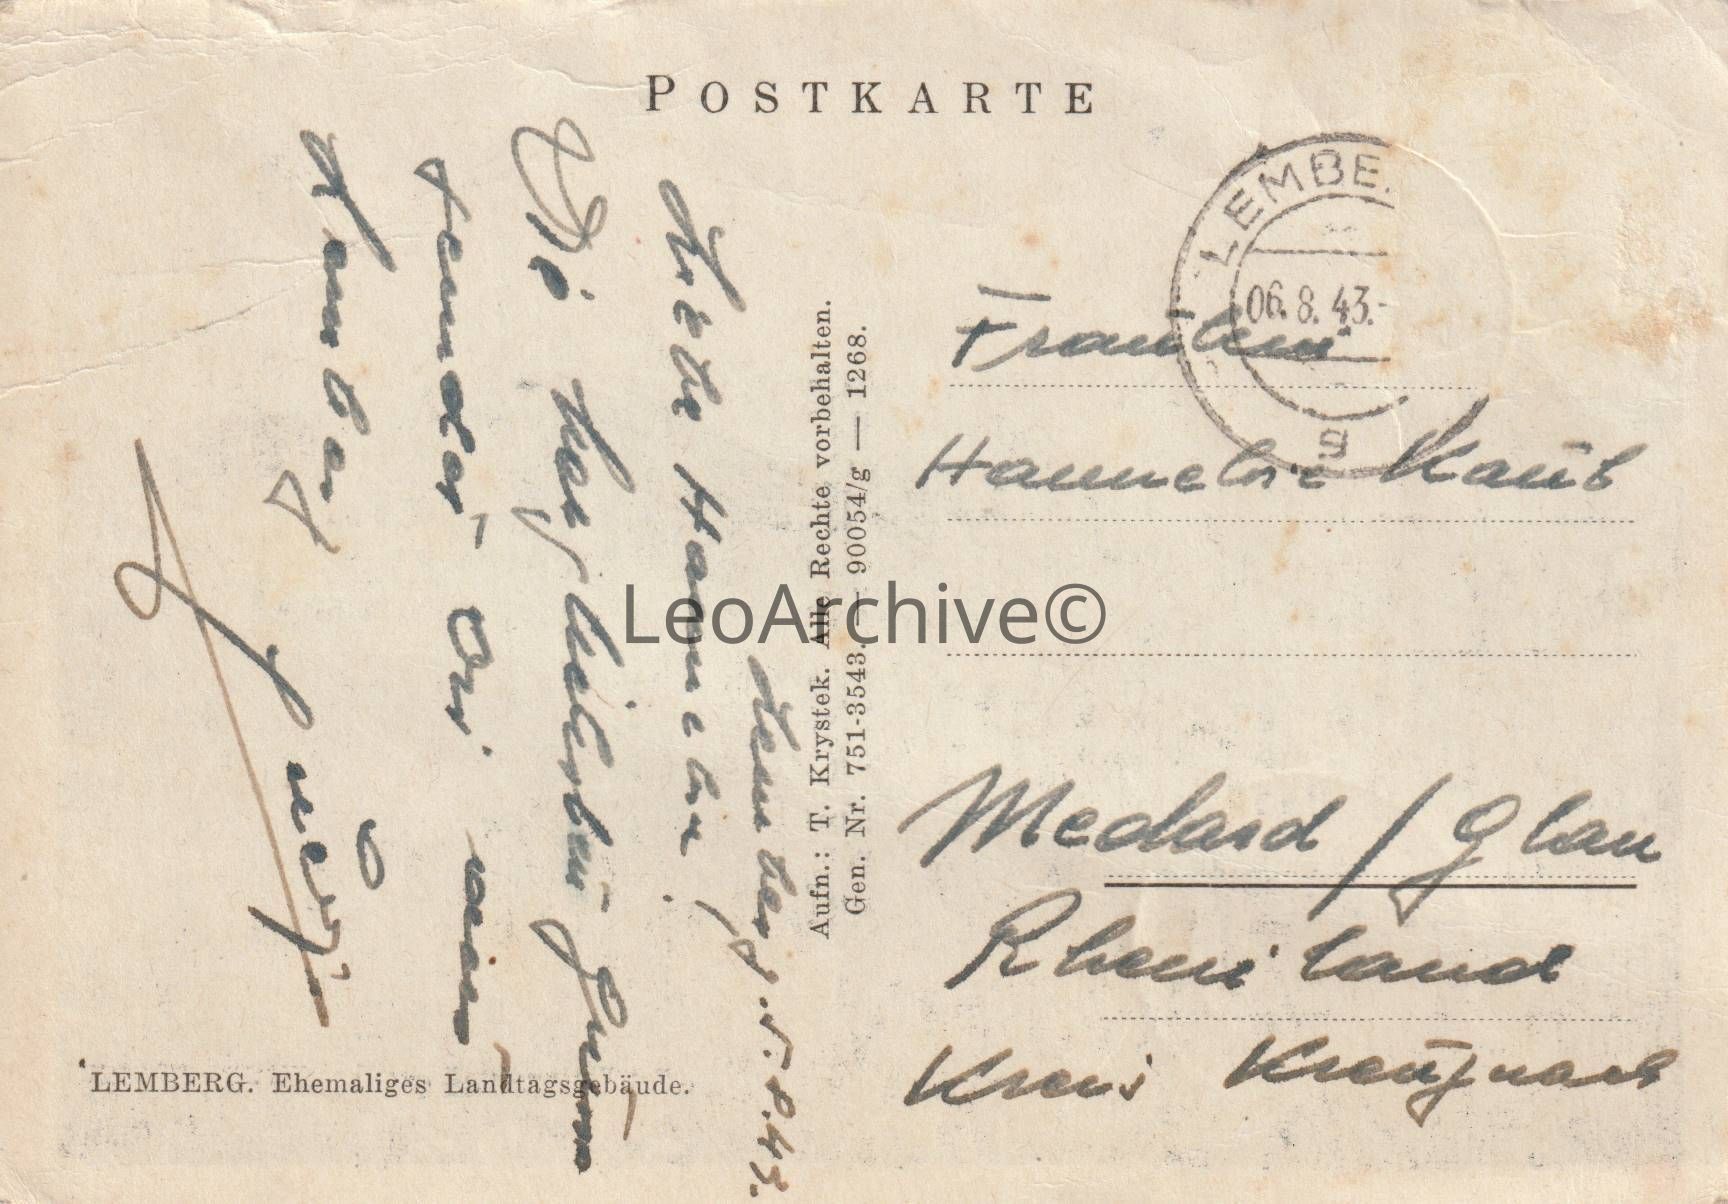 POSTKARTE
LEMBE
06.8.43.-
g
Lemberg, 5.8.43.
Liebe Hannelore!
Die herzlichsten Grüße
sendet Dir aus
Lemberg
Aufn.: T. Krystek. Alle Rechte vorbehalten.
Gen. Nr. 751-3543. — 90054/g — 1268.
Fräulein
Hannelore Kaub
Medard / Glan
Rheinland
Kreis Kreuznach
LEMBERG. Ehemaliges Landtagsgebäude.
LeoArchive©